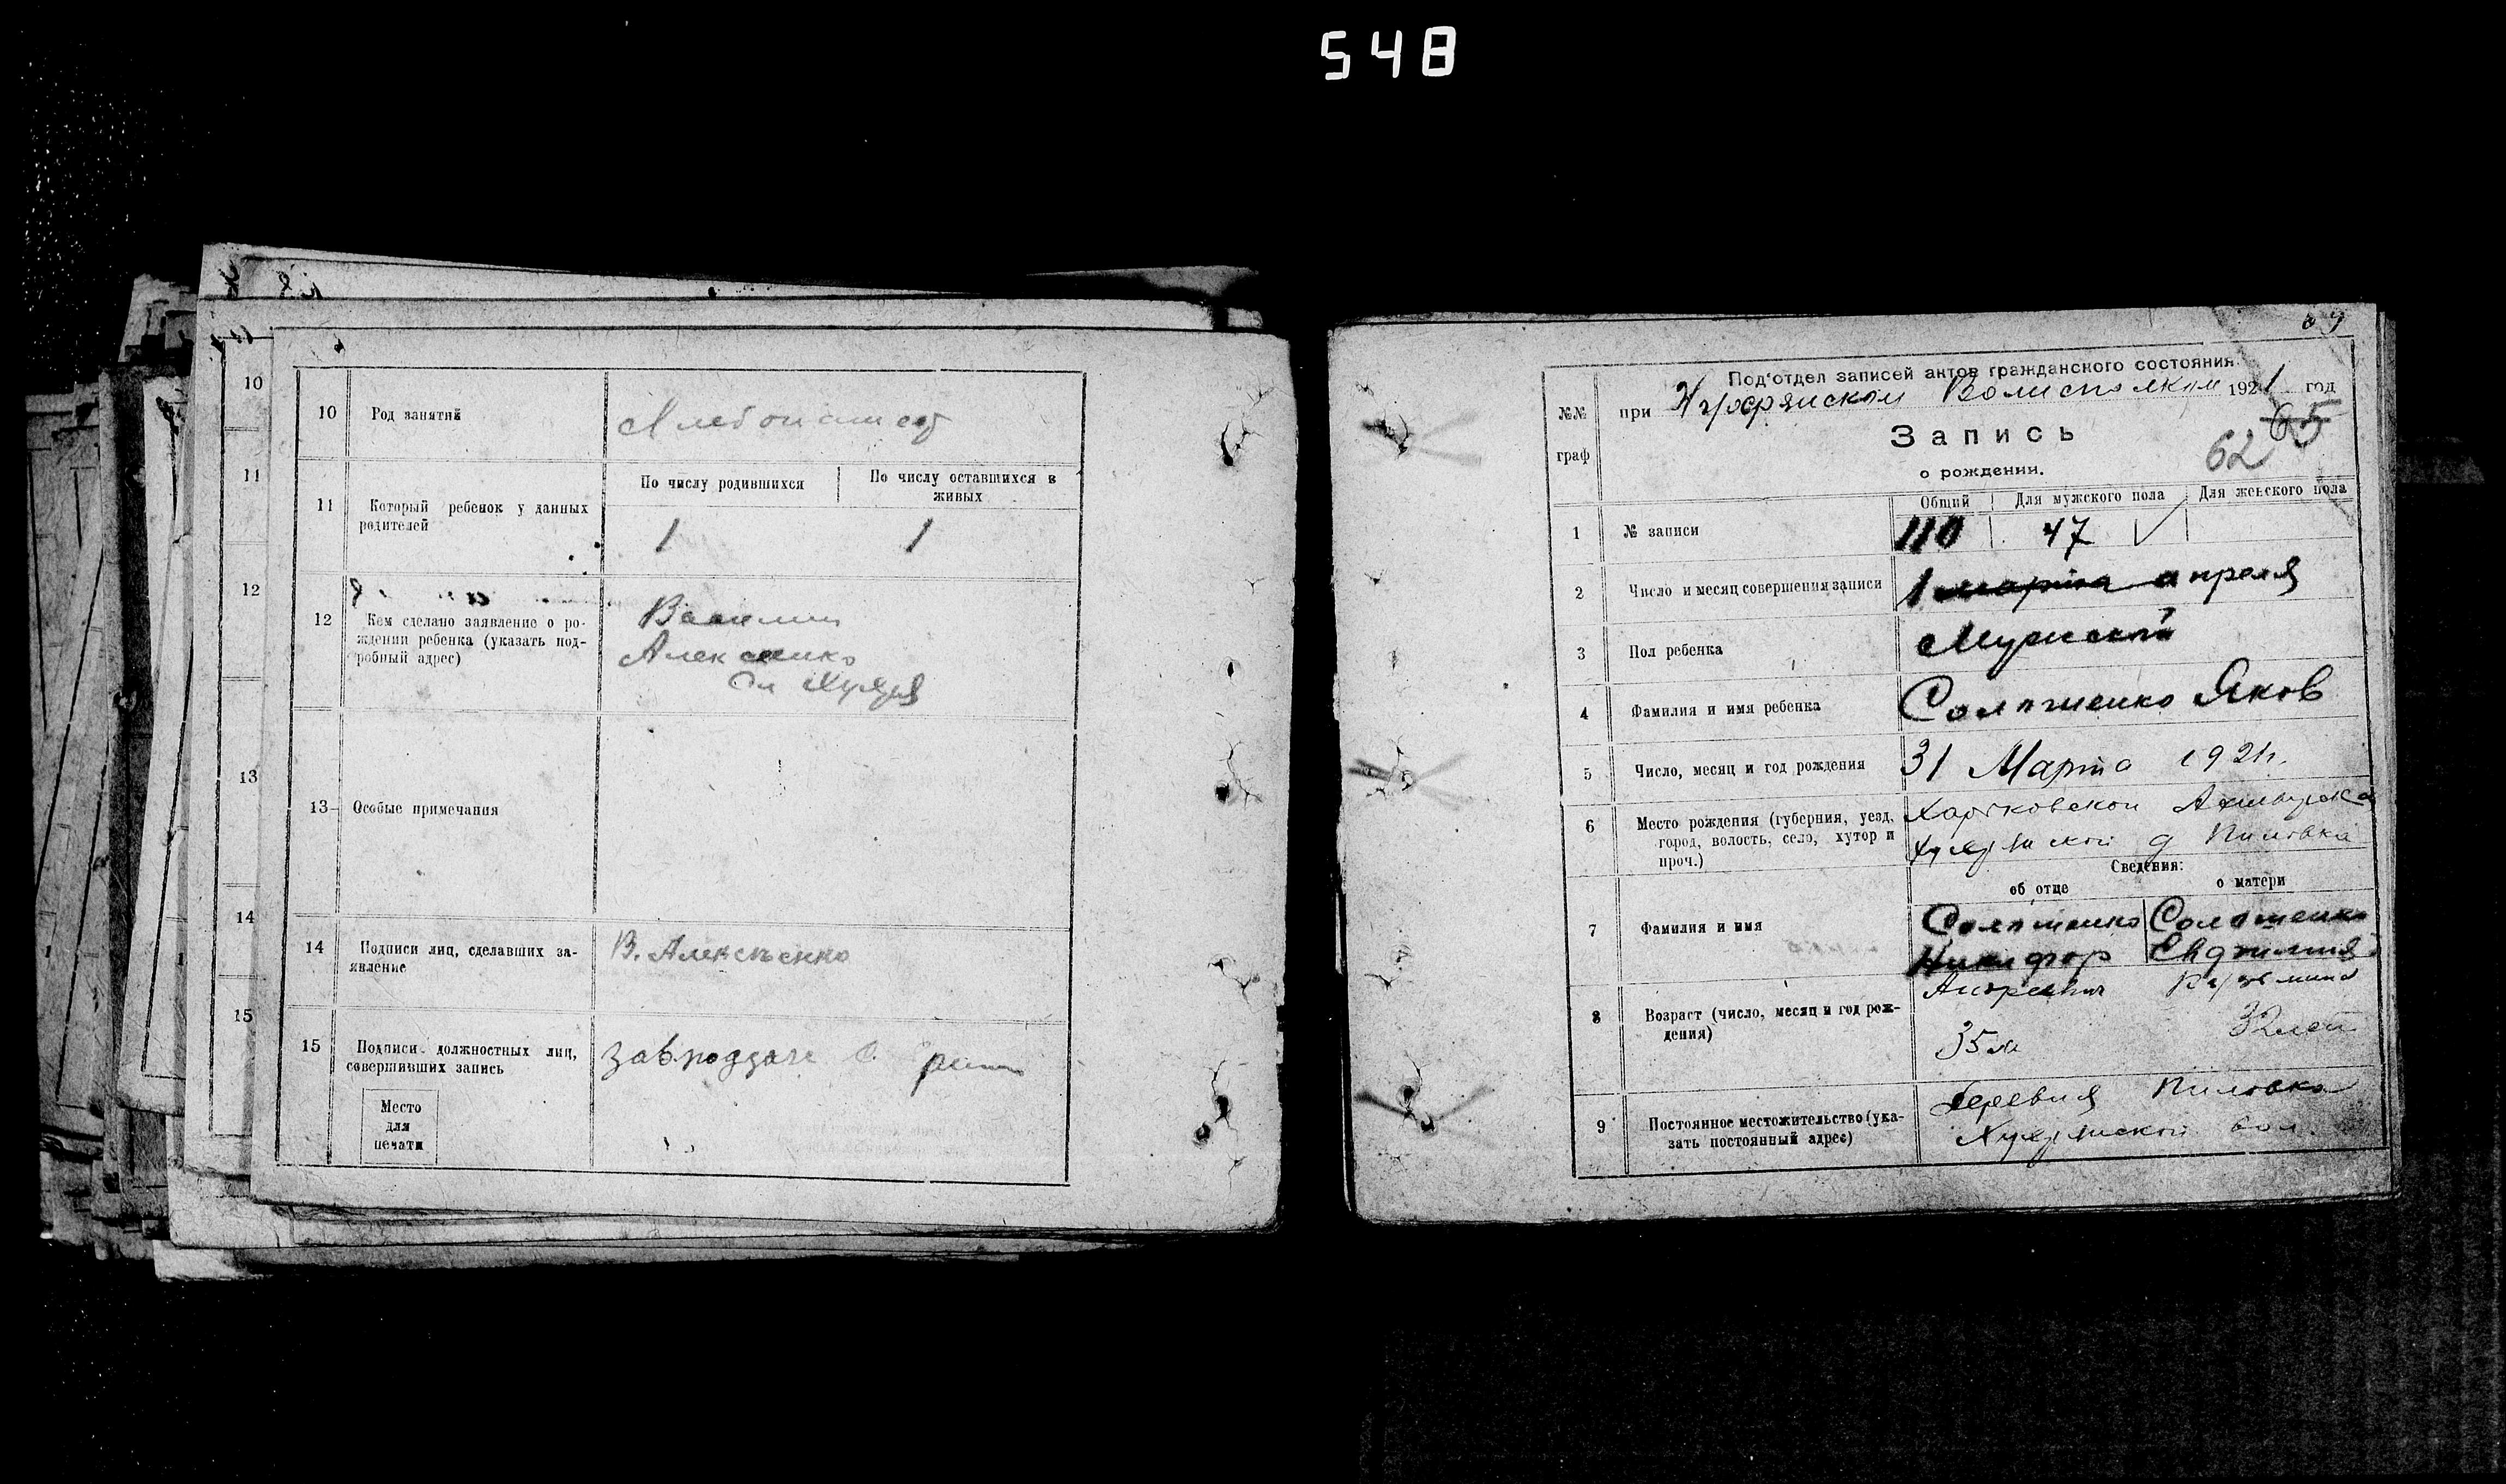 548
10
11
12
13
14
15
10 Род занятий
11 Который ребенок у данных
родителей
По числу родившихся
По числу оставшихся в
живых
1 1
12 Кем сделано заявление о ро-
ждении ребенка (указать под-
робный адрес)
Василий
Алексенко
13 Особые примечания
14 Подписи лиц, сделавших за-
явление
В. Алексенко
15 Подписи должностных лиц,
совершивших запись
Место
для
печати
69
Под'отдел записей актов гражданского состояния.
№№
граф
при Волисполком 1921 год
65
62
Запись
о рождении.
Общий Для мужского пола Для женского пола
1 № записи 110 47
2 Число и месяц совершения записи 1 марта апреля
3 Пол ребенка Мужской
4 Фамилия и имя ребенка Солошенко Яков
5 Число, месяц и год рождения 31 Марта 1921 г.
6 Место рождения (губерния, уезд,
город, волость, село, хутор и
проч.)
Харьковской
д Пиловка
Сведения:
об отце о матери
7 Фамилия и имя
Солошенко Солошенко
Никифор
8 Возраст (число, месяц и год рож-
дения)
35 л 32 лет
9 Постоянное местожительство (ука-
зать постоянный адрес)
Деревня Пиловка
вол.